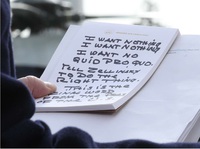 I WANT NOTHING
I WANT NOTHING
I WANT NO
QUID PRO QUO.
TELL ZELLINSKY
TO DO THE
RIGHT THING.
THIS IS THE
FINAL WORD
FROM THE